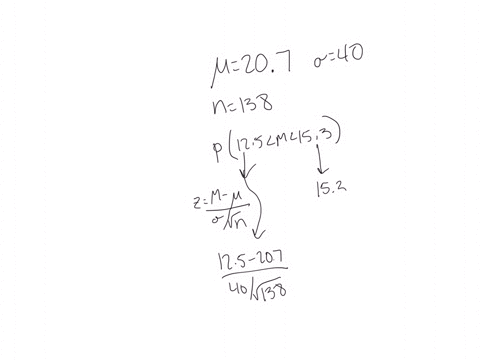 μ=20.7 σ=40
n=138
P(12.5<M<15.3)
15.2
z=M-μ/σ/√n
12.5-207/40/√138